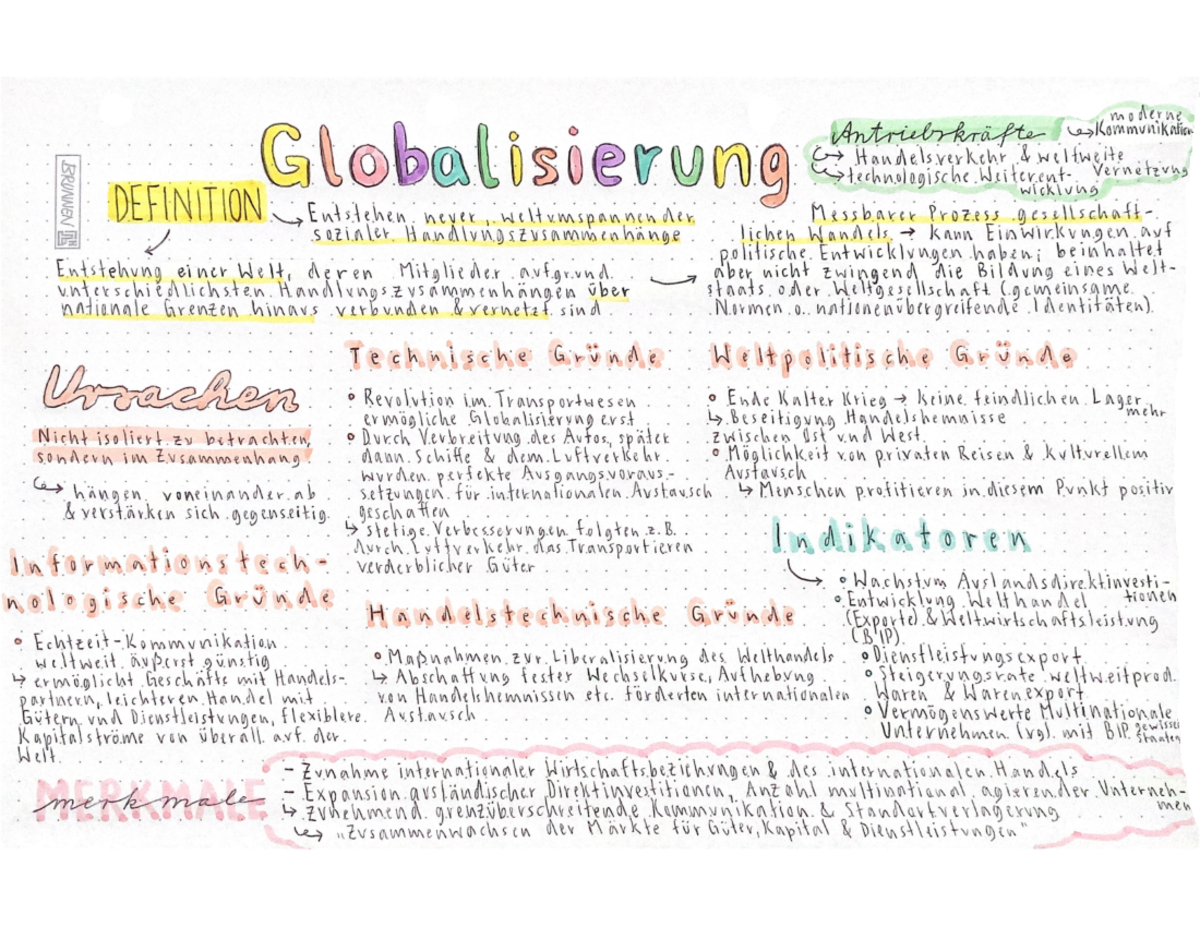 Globalisierung
BRUNNEN
Antriebskräfte
↳ moderne
Kommunikation
↳ Handelsverkehr & weltweite
Vernetzung
↳ technologische Weiterent-
wicklung
DEFINITION
→ Entstehen neuer, weltumspannender
sozialer Handlungszusammenhänge
Entstehung einer Welt, deren Mitglieder aufgrund
unterschiedlichsten Handlungszusammenhängen über
nationale Grenzen hinaus verbunden & vernetzt sind
→ Messbarer Prozess gesellschaft-
lichen Wandels → kann Einwirkungen auf
politische Entwicklungen haben; beinhaltet
aber nicht zwingend die Bildung eines Welt-
staats oder Weltgesellschaft (gemeinsame
Normen o. nationenübergreifende Identitäten).
Ursachen
Nicht isoliert zu betrachten,
sondern im Zusammenhang
↳ hängen voneinander ab
& verstärken sich gegenseitig
Technische Gründe
• Revolution im Transportwesen
ermögliche Globalisierung erst
• Durch Verbreitung des Autos, später
dann Schiffe & dem Luftverkehr
wurden perfekte Ausgangsvoraus-
setzungen für internationalen Austausch
geschaffen
↳ stetige Verbesserungen folgten z.B.
durch Luftverkehr das Transportieren
verderblicher Güter
Weltpolitische Gründe
• Ende Kalter Krieg → keine feindlichen Lager
mehr
↳ Beseitigung Handelshemnisse
zwischen Ost und West
• Möglichkeit von privaten Reisen & kulturellem
Austausch
↳ Menschen profitieren in diesem Punkt positiv
Informationstech-
nologische Gründe
• Echtzeit-Kommunikation
weltweit äußerst günstig
↳ ermöglicht Geschäfte mit Handels-
partnern, leichteren Handel mit
Gütern und Dienstleistungen, flexiblere
Kapitalströme von überall auf der
Welt
Handelstechnische Gründe
• Maßnahmen zur Liberalisierung des Welthandels
↳ Abschaffung fester Wechselkurse, Aufhebung
von Handelshemnissen etc. förderten internationalen
Austausch
Indikatoren
• Wachstum Auslandsdirektinvesti-
tionen
• Entwicklung Welthandel
(Exporte) & Weltwirtschaftsleistung
(BIP)
• Dienstleistungsexport
• Steigerungsrate weltweit prod.
Waren & Warenexport
• Vermögenswerte Multinationale
Unternehmen (vgl. mit BIP gewisser
Staaten
MERKMALE
merkmale
- Zunahme internationaler Wirtschaftsbeziehungen & des internationalen Handels
- Expansion ausländischer Direktinvestitionen, Anzahl multinational agierender Unterneh-
men
↳ Zunehmend grenzüberschreitende Kommunikation & Standortverlagerung
↳ „Zusammenwachsen der Märkte für Güter, Kapital & Dienstleistungen"